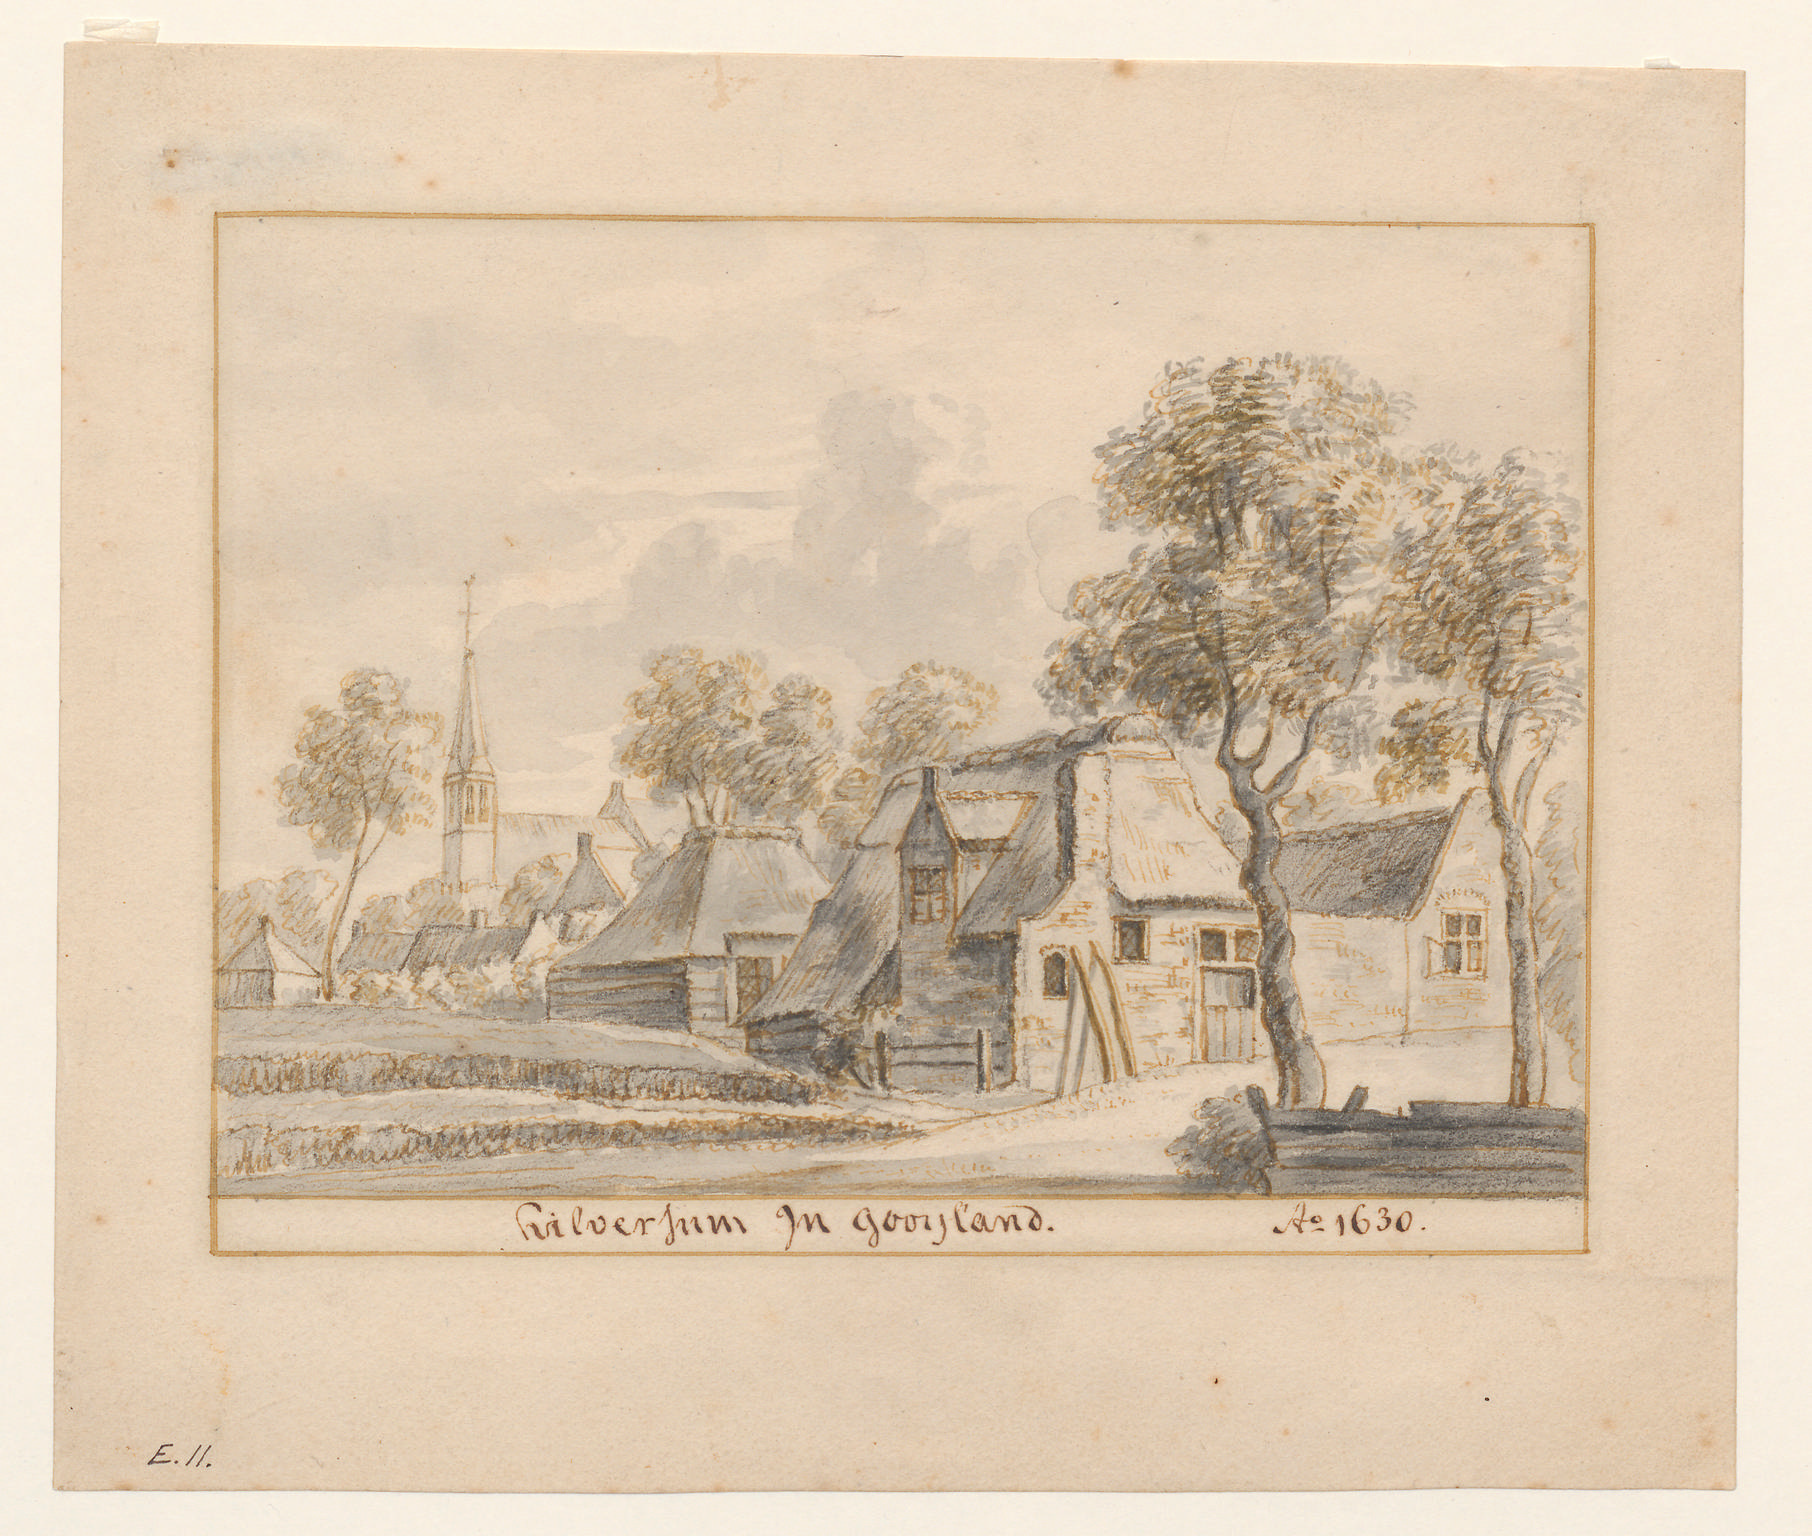 hilversum In gooyland. Ao 1630.
E.11.